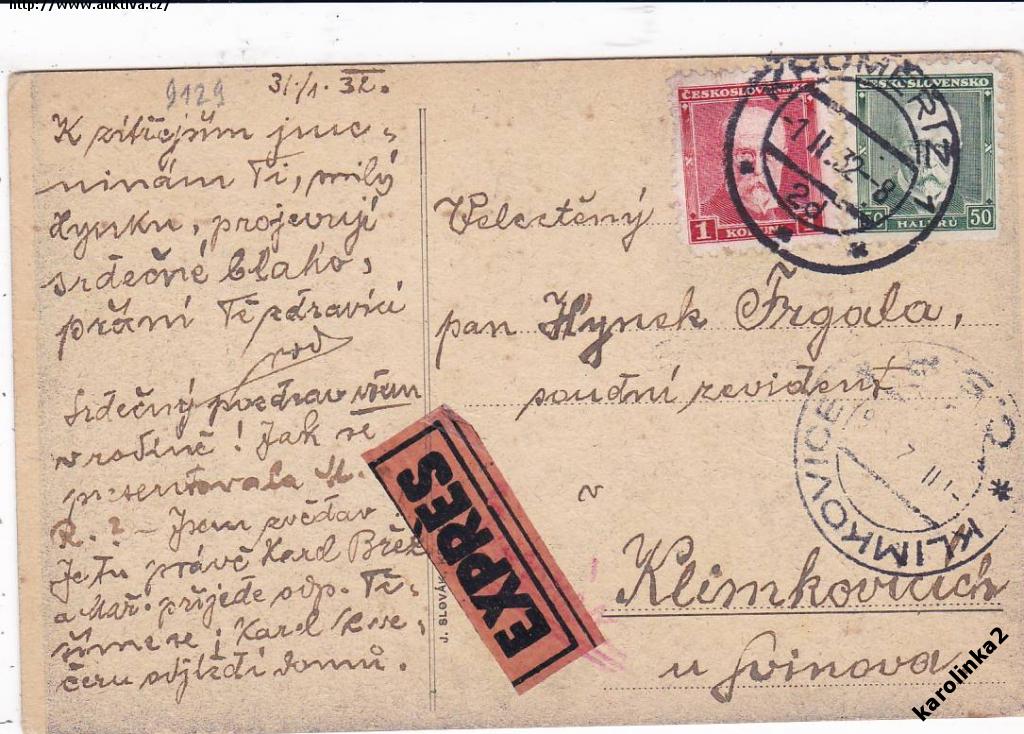 http://www.auktiva.cz/
9129
31/1. 32.
K zítřejším jme-
ninám Ti, milý
Hynku, projevuji
srdečné blaho-
přání Ti zdravící
Srdečný pozdrav všem
v rodině! Jak se
presentovala
R.? – Jsem zvědav
Je tu právě Karel Břez
a Mař. přijede odp. Tě-
šíme se! Karel k ve-
čeru odjíždí domů.
J. SLOVÁK,
EXPRÈS
ČESKOSLOVENSKO
1 KORUNA
ČESKOSLOVENSKO
50 HALÉŘŮ 50
KROMĚŘÍŽ 1
-1 II. 32 -8
2d
Velectěný
pan Hynek Frgala,
soudní revident
v
Klimkovicích
u Svinova
KLIMKOVICE
karolinka2